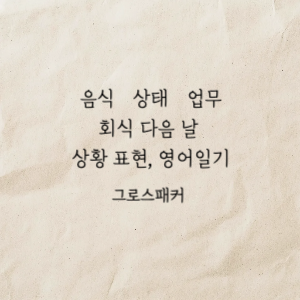 음식 상태 업무
회식 다음 날
상황 표현, 영어일기
그로스패커